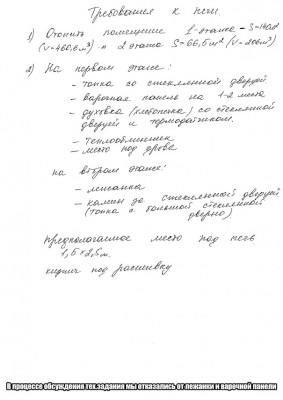 Требования к печи.
1) Отопить помещение 1-этажа - S=140м²
(V=460,6м³) и 2 этажа S=66,5м² (V=200м³)
2) На первом этаже:
- топка со стеклянной дверцей
- варочная панель на 1-2 места
- духовка (хлебопека) со стеклянной
дверцей и термодатчиком.
- теплообменник
- место под дрова
на втором этаже:
- лежанка
- камин со стеклянной дверцей
(топка с большой стеклянной
дверью)
предполагаемое место под печь
1,5×2,5м.
кирпич под расшивку
В процессе обсуждения тех.задания мы отказались от лежанки и варочной панели